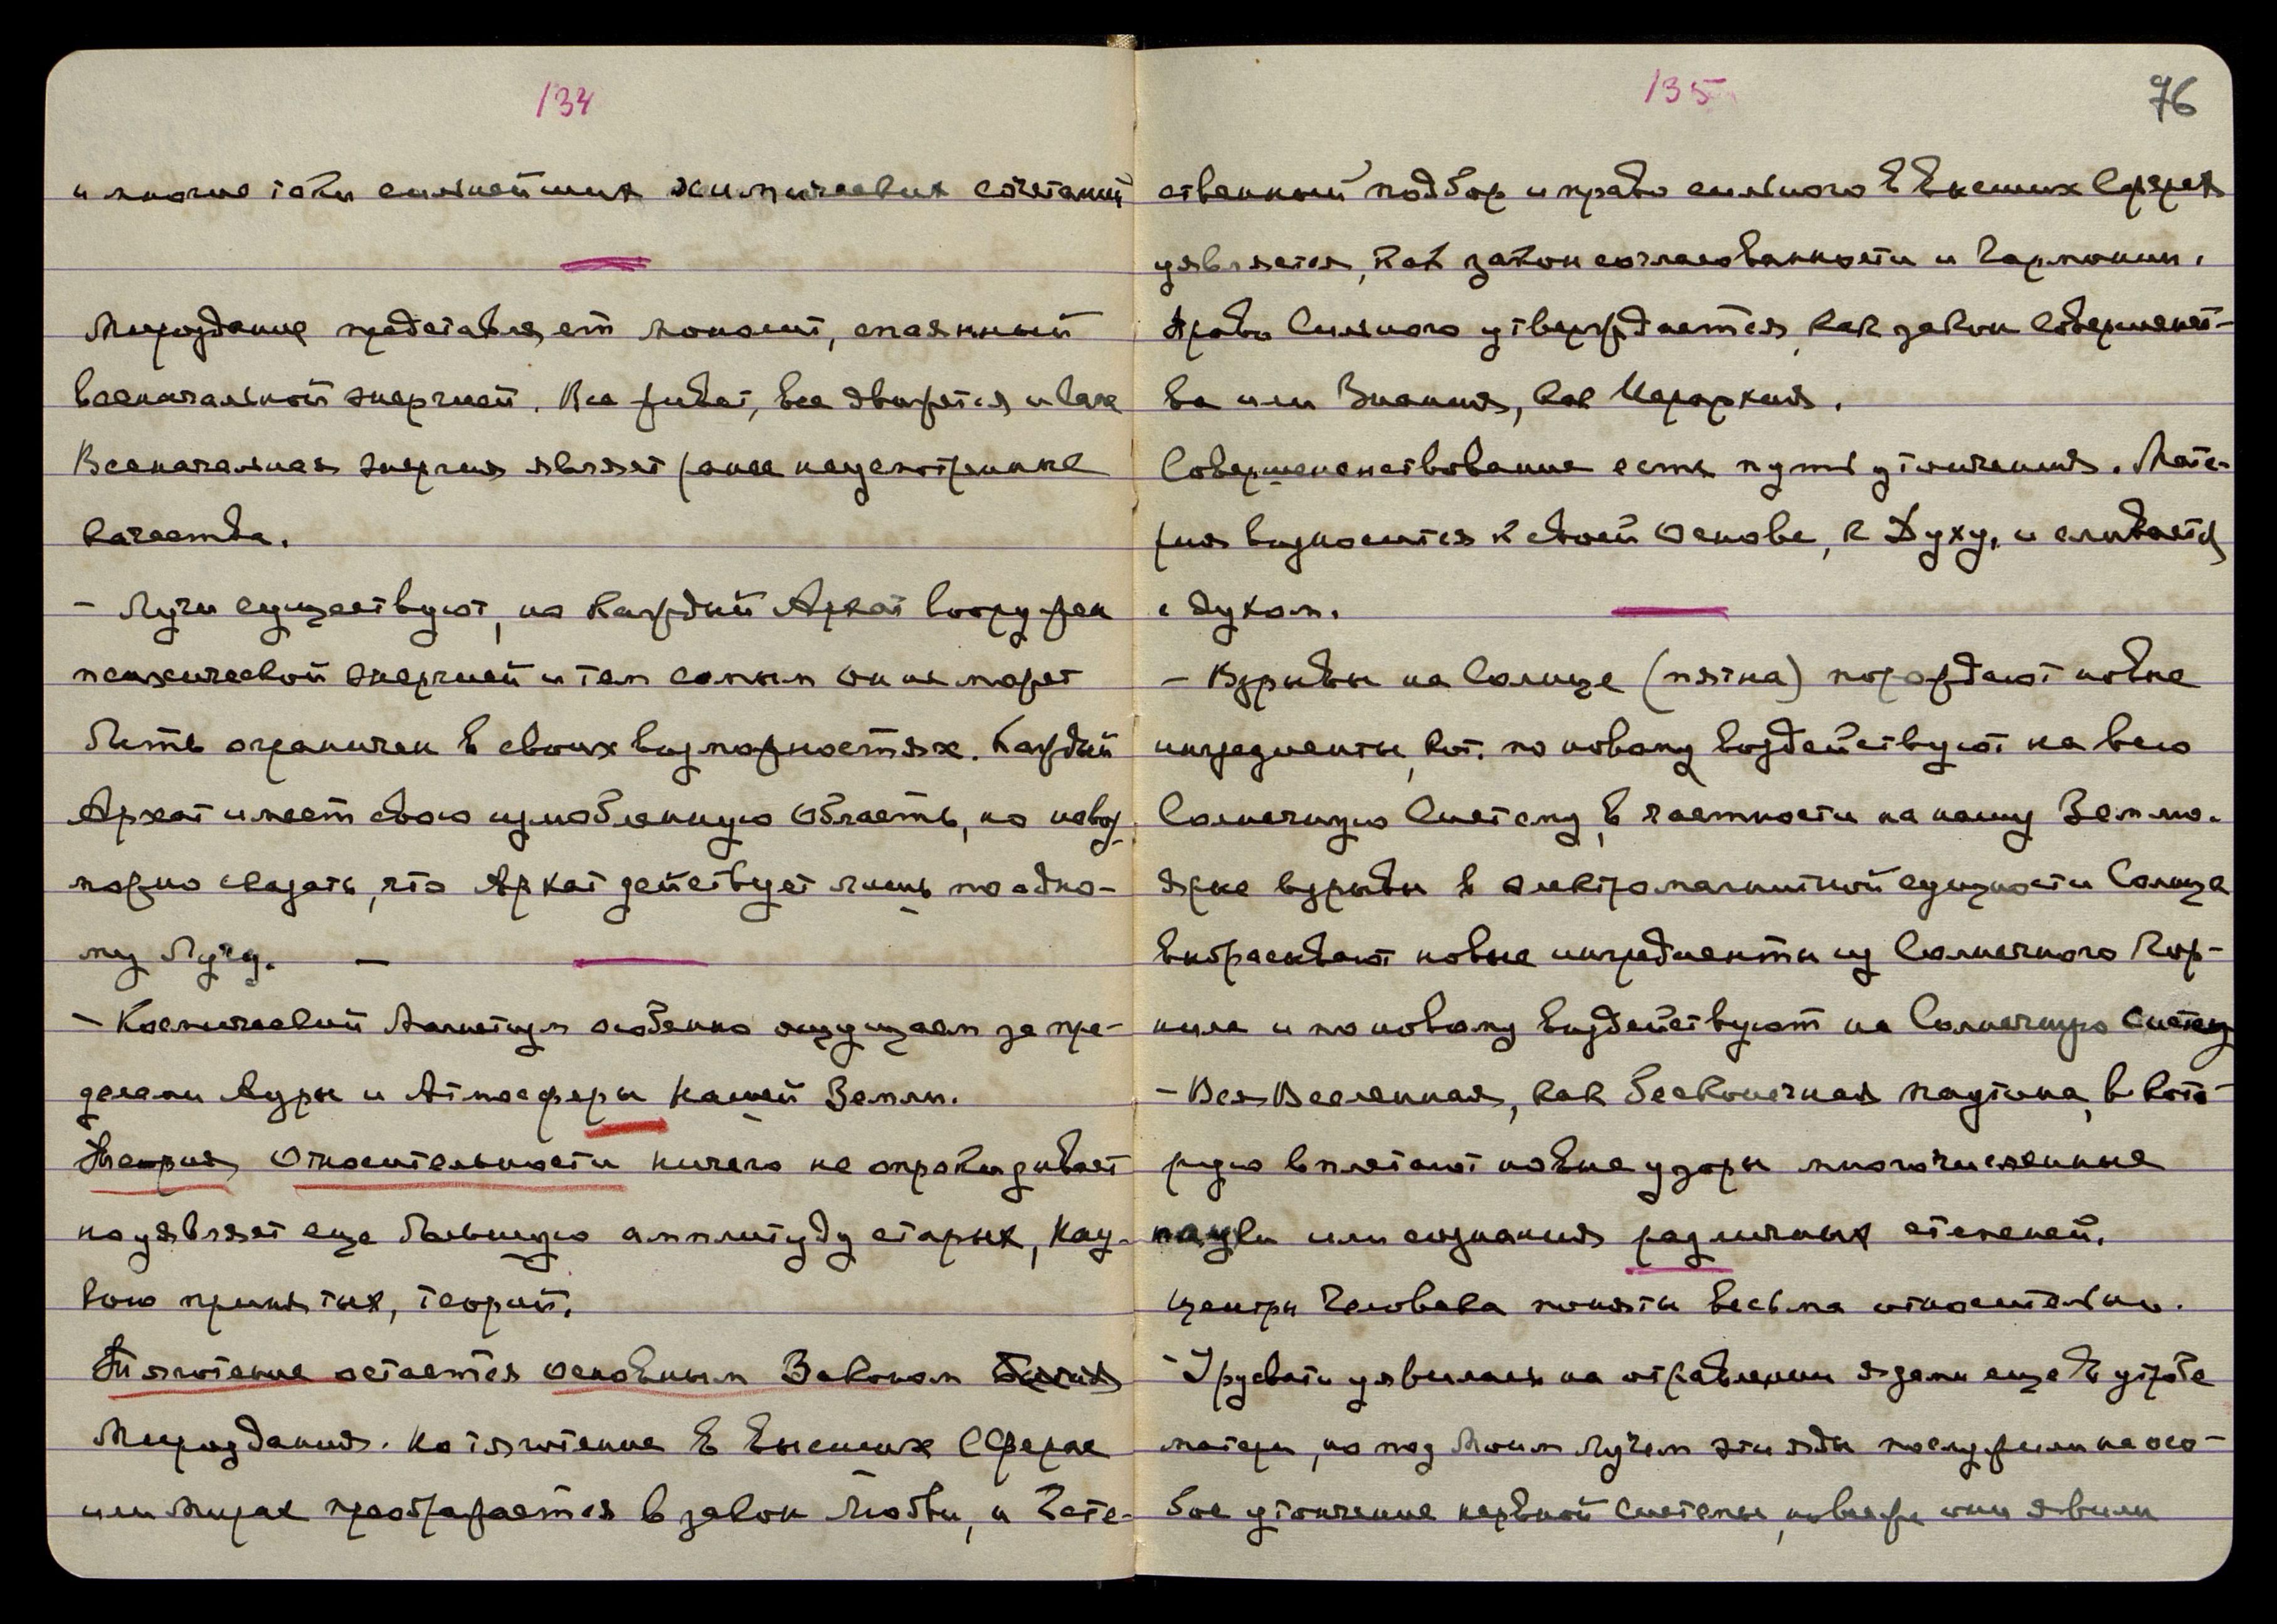 134
и многие токи сильнейших химических сочетаний
Мироздание представляет монолит, спаянный
всеначальной энергией. Все живет, все движется и сама
Всеначальная энергия являет ранее неусмотренные
качества.
– Лучи существуют, но каждый Архат вооружен
психической энергией и тем самым он не может
быть ограничен в своих возможностях. Каждый
Архат имеет свою излюбленную область, но невоз-
можно сказать, что Архат действует лишь по одно-
му Лучу. –
– Космический Магнетизм особенно ощущаем за пре-
делами Ауры и Атмосферы нашей Земли.
Теория Относительности ничего не опрокидывает
но уявляет еще большую амплитуду старых, нау-
кою принятых, теорий.
Тяготение остается основным Законом Бытия
Мироздания. Но тяготение в Высших Сферах
или Мирах преображается в закон Любви, и Есте-
135
76
ственный подбор и право сильного в Высших Сферах
уявляется, как закон согласованности и Гармонии.
Право Сильного утверждается, как закон Совершенст-
ва или Знания, как Иерархия.
Совершенствование есть путь утончения. Мате-
рия возносится к своей Основе, к Духу, и сливается
с духом.
– Взрывы на Солнце (пятна) порождают новые
ингредиенты, кот. по новому воздействуют на всю
Солнечную Систему, в частности на нашу Землю.
Яркие взрывы в электромагнитной сущности Солнца
выбрасывают новые ингредиенты из Солнечного Гор-
нила и по новому воздействуют на Солнечную Систему
– Вся Вселенная, как бесконечная паутина, в кото-
рую вплетают новые узоры многочисленные
пауки или сознания различных степеней.
Центры Человека поняты весьма относительно.
– Урусвати уявилась на отравлении ядами еще в утробе
матери, но под Моим Лучом эти яды послужили на осо-
бое утончение нервной системы, но также они явили